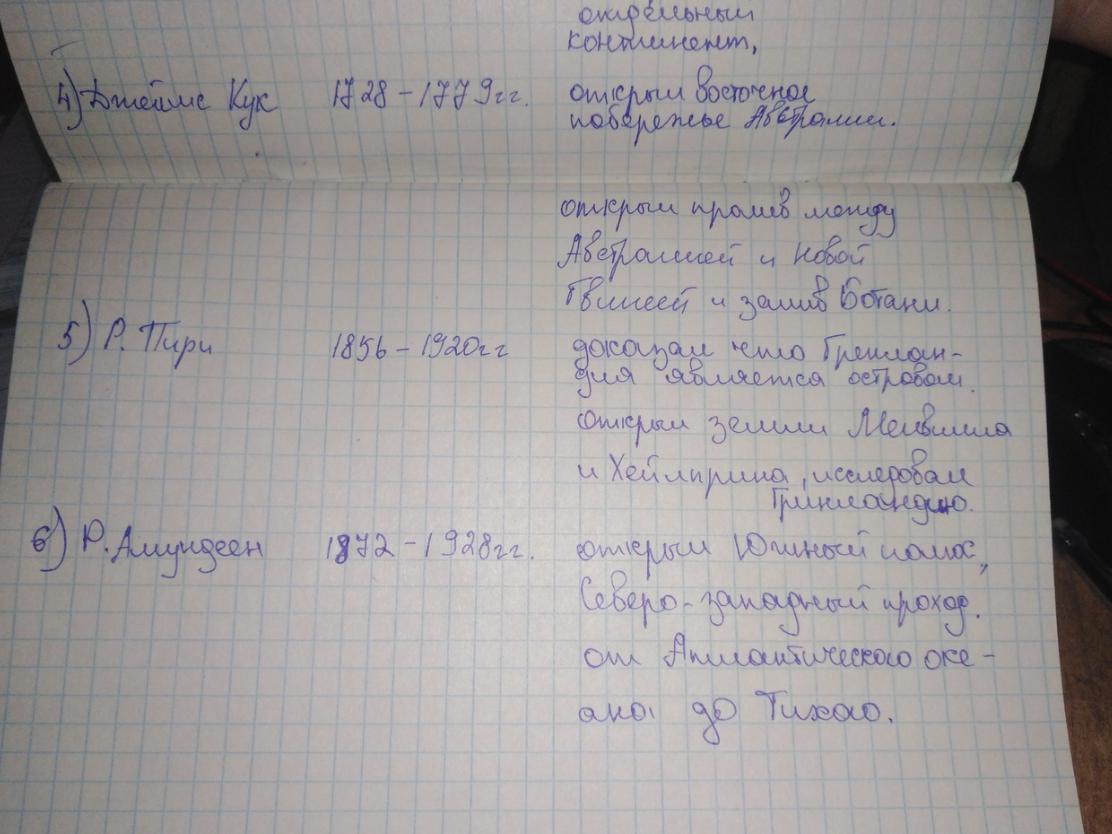 отдельный
континент,
4) Джеймс Кук 1728-1779гг. открыл восточное
побережье Австралии.
открыл пролив между
Австралией и Новой
Гвинеей и залив Ботани.
5) Р. Пири 1856-1920гг доказал что Гренлан-
дия является островом.
открыл земли Мелвилла
и Хейлприна, исследовал
Гринландию.
6) Р. Амундсен 1872-1928гг. открыл Южный полюс,
Северо-западный проход.
от Атлантического оке-
ана до Тихого.